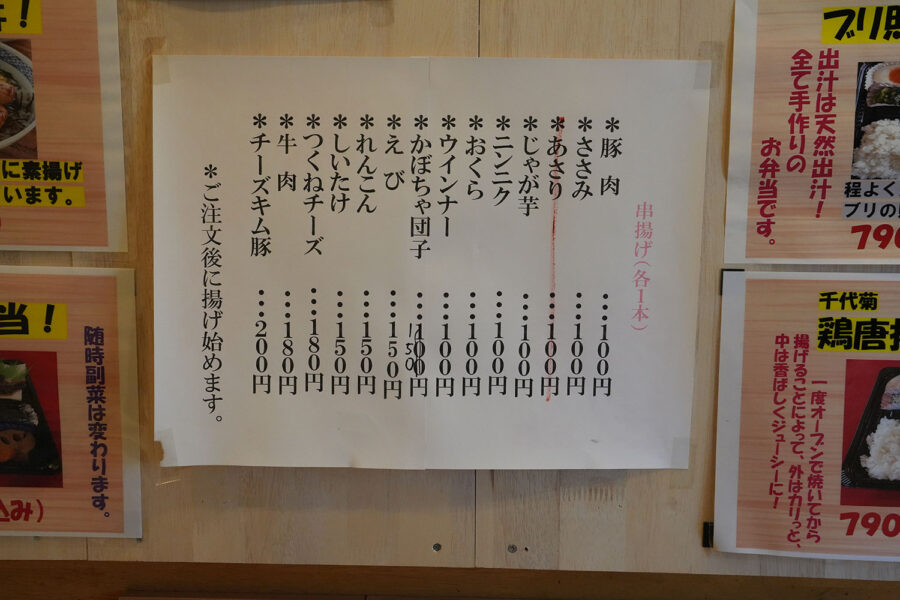 串揚げ(各1本)
＊豚肉 …100円
＊ささみ …100円
＊あさり …100円
＊じゃが芋 …100円
＊ニンニク …100円
＊おくら …100円
＊ウインナー …100円
＊かぼちゃ団子 …100円
150
＊えび …150円
＊れんこん …150円
＊しいたけ …150円
＊つくねチーズ …180円
＊牛肉 …180円
＊チーズキム豚 …200円
＊ご注文後に揚げ始めます。
ブリ照
出汁は天然出汁！
全て手作りの
お弁当です。
程よく
ブリの
790
千代菊
鶏唐揚
一度オーブンで焼いてから
揚げることによって、外はカリっと、
中は香ばしくジューシーに！
790
！
に素揚げ
います。
当！
随時副菜は変わります。
込み)